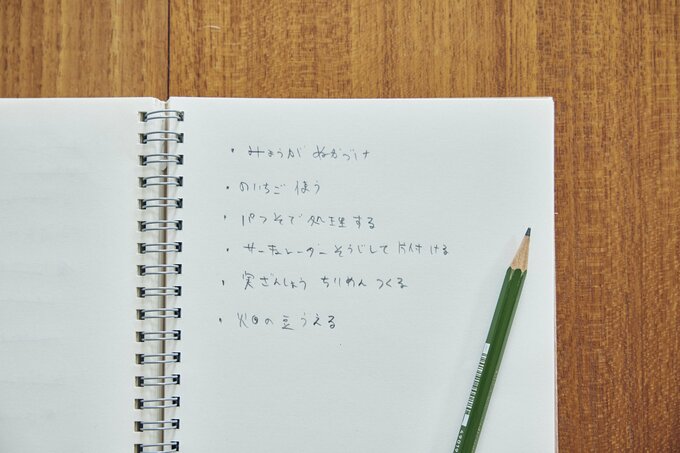 ・みょうが ぬかづけ
・のいちご 使う
・処理する
・サーキュレーター そうじして 片付ける
・実ざんしょう ちりめん つくる
・畑の豆うえる